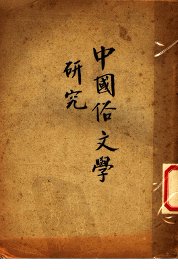 中國俗文學
研究